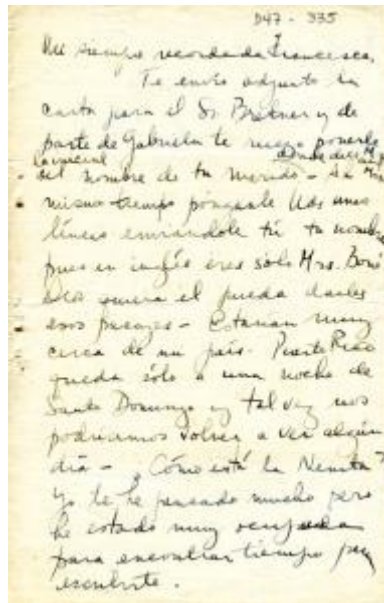 D47 - 335
Mi siempre recordada Francesca,
Te envío adjunto la
carta para el Sr Bretner y de
parte de Gabriela te ruego ponerle
la inicial donde dice M.
del nombre de tu marido - Al
mismo tiempo póngale Uds unas
líneas enviándole tú tu nombre
pues en inglés eres solo Mrs. Boné
Dios quiera él pueda darles
esos pasajes - Estarían muy
cerca de mi país. Puerto Rico
queda sólo a una noche de
Santo Domingo y tal vez nos
podríamos volver a ver algún
día - ¿Cómo está la Nenita?
Yo te he pensado mucho pero
he estado muy ocupada
para encontrar tiempo para
escribirte.